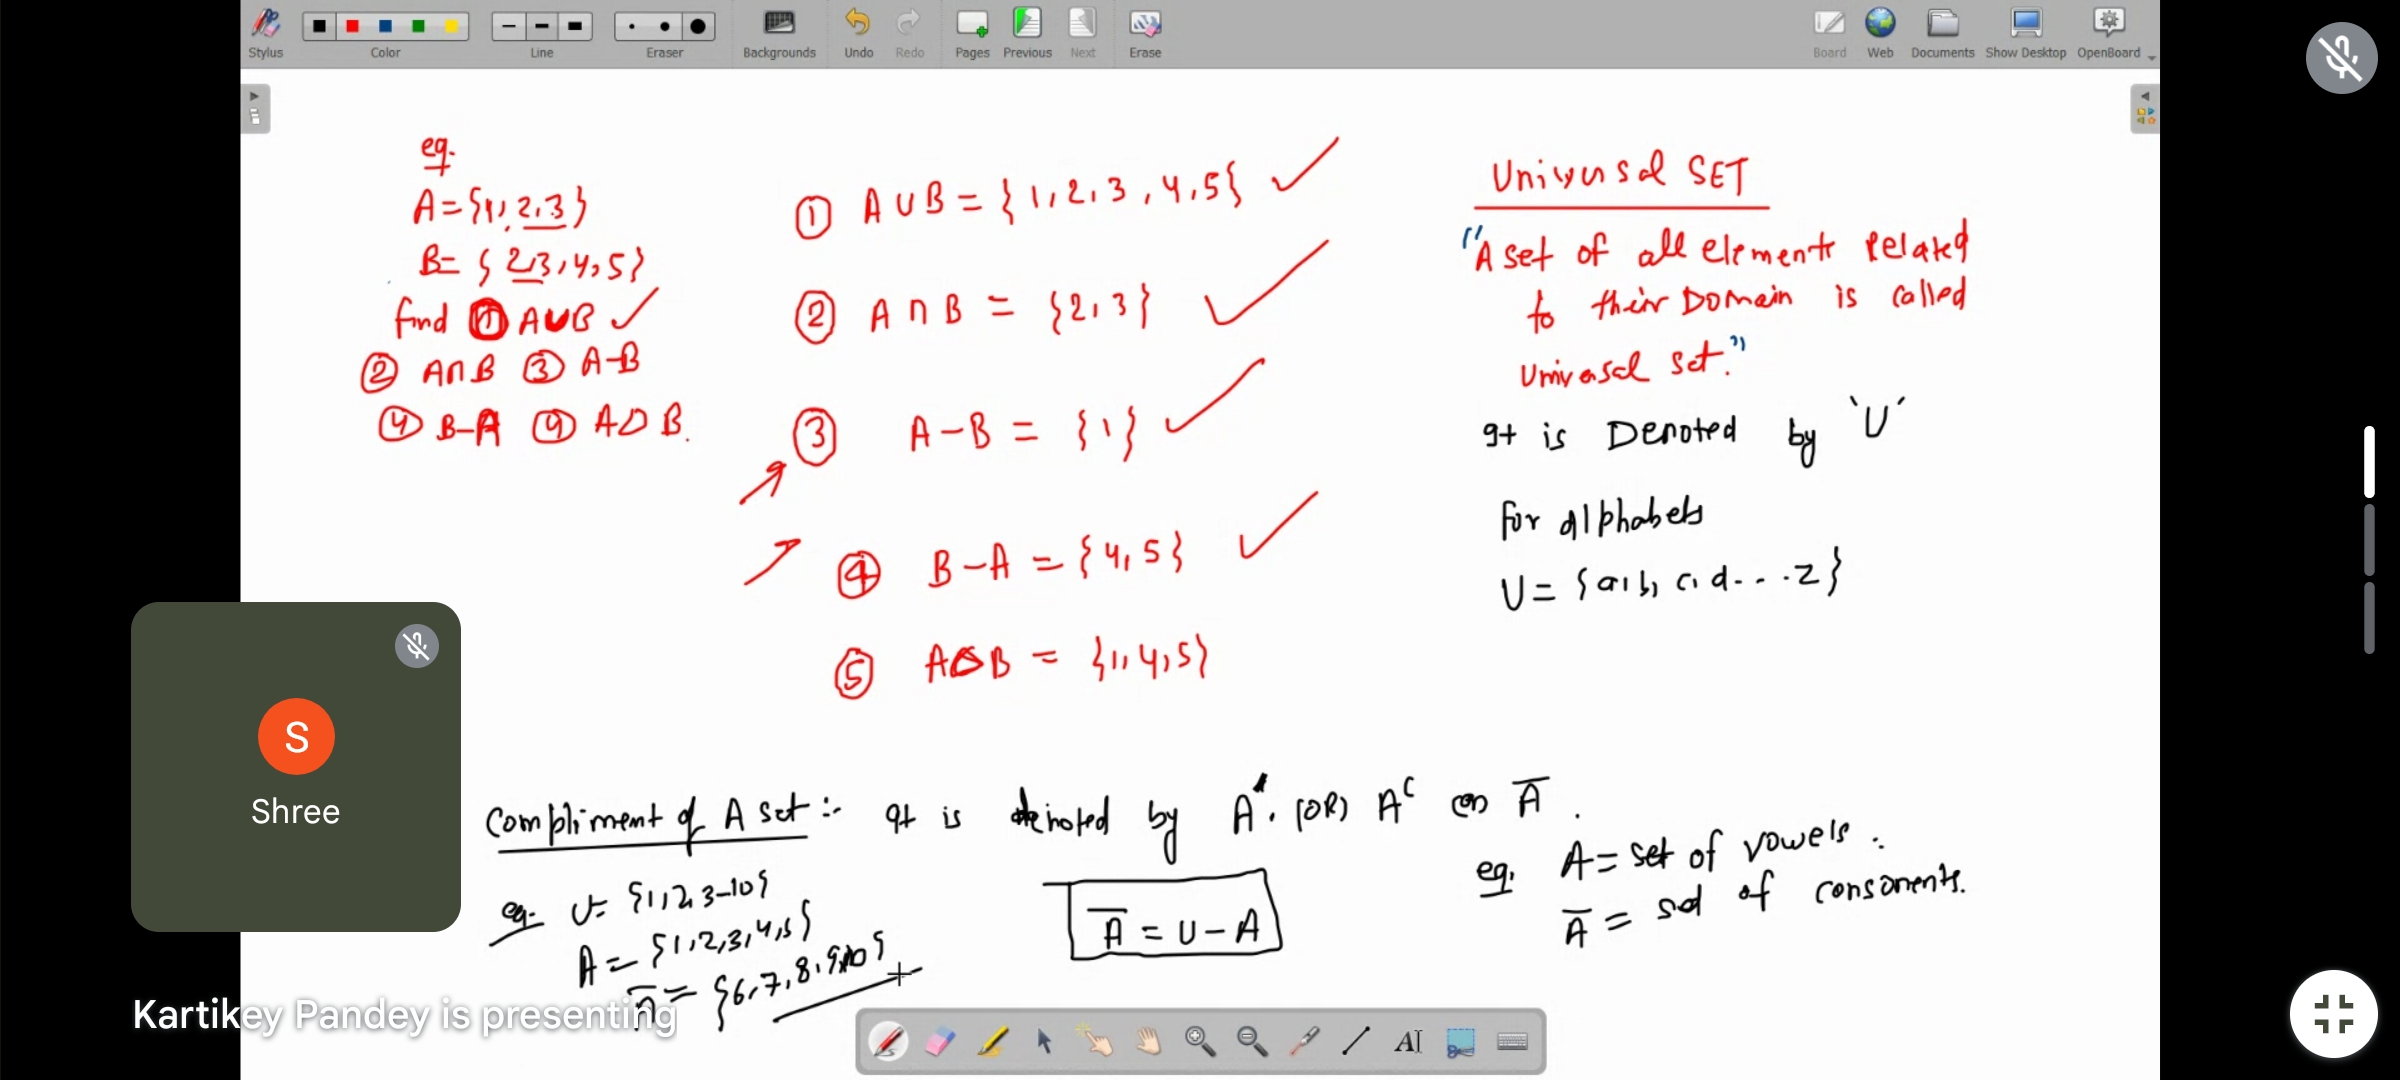 Stylus
Color
Line
Eraser
Backgrounds
Undo
Redo
Pages
Previous
Next
Erase
Board
Web
Documents
Show Desktop
OpenBoard
eg.
A={1,2,3}
B= {2,3,4,5}
find ① A∪B ✓
② A∩B ③ A-B
④ B-A ④ A△B.
① A∪B = {1,2,3,4,5} ✓
② A∩B = {2,3} ✓
③ A-B = {1} ✓
④ B-A = {4,5} ✓
⑤ A△B = {1,4,5}
Universal SET
"A set of all elements related
to their Domain is called
Universal set."
It is Denoted by 'U'
for alphabets
U= {a,b,c,d...z}
Compliment of A set :- It is denoted by A'. (OR) A^c or A̅.
eg. U= {1,2,3-10}
A= {1,2,3,4,5}
A̅ = {6,7,8,9,10}
A̅ = U-A
eg. A= set of vowels.
A̅ = set of consonents.
S
Shree
Kartikey Pandey is presenting
AI